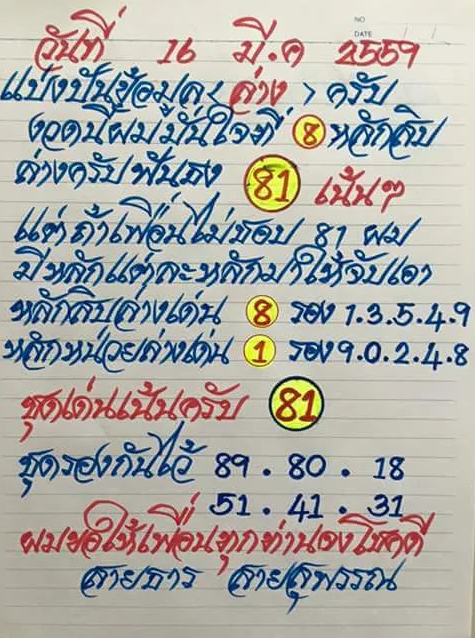 NO
DATE
วันที่ 16 มี.ค 2559
แบ่งปันข้อมูล < ล่าง > ครับ
งวดนี้ผมมั่นใจที่ 8 หลักสิบ
ล่างครับฟันธง 81 เน้นๆ
แต่ถ้าเพื่อนไม่ชอบ 81 ผม
มีหลักแต่ละหลักมาให้จับเอา
หลักสิบล่างเด่น 8 รอง 1.3.5.4.9
หลักหน่วยล่างเด่น 1 รอง 9.0.2.4.8
ชุดเด่นเน้นครับ 81
ชุดรองกันไว้ 89 . 80 . 18
51 . 41 . 31
ผมขอให้เพื่อนทุกท่านจงโชคดี
สายธาร สายสุพรรณ